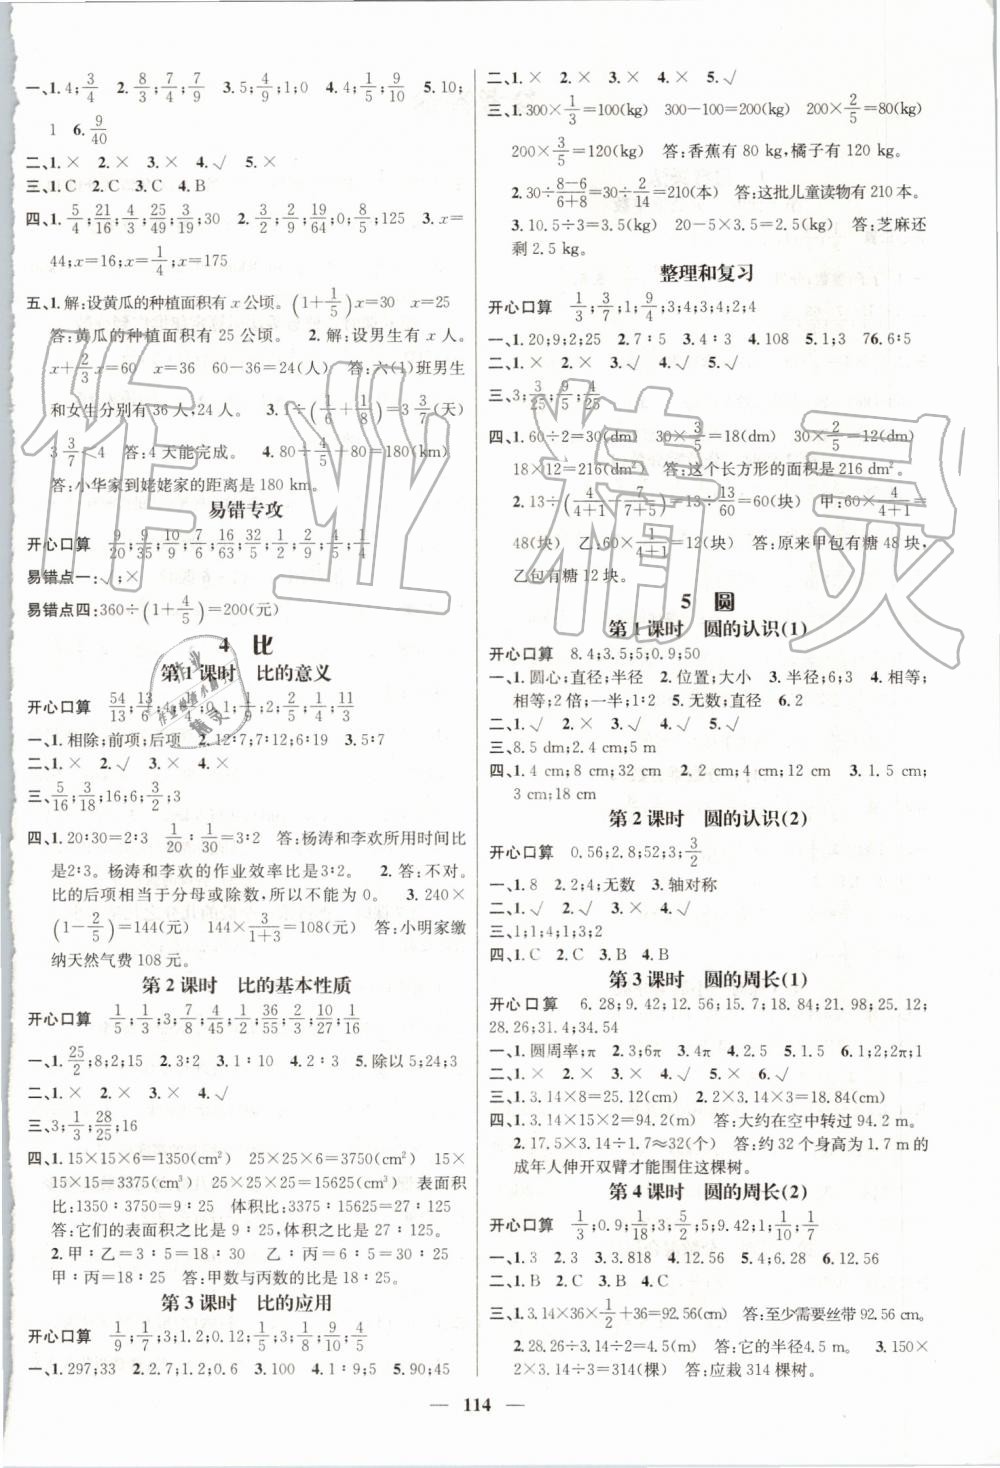 一、1. 4; 3/4　2. 8/3; 7/4; 7/9　3. 5; 4/9; 1; 0　4. 1/4; 1/5; 9/10　5. 10;
1　6. 9/40
二、1. ×　2. ×　3. ×　4. √　5. ×
三、1. C　2. C　3. C　4. B
四、1. 5/4; 21/16; 4/3; 25/49; 3/19; 30　2. 3/2; 2/9; 19/64; 0; 8/5; 125　3. x=
44; x=16; x=1/4; x=175
五、1. 解:设黄瓜的种植面积有 x 公顷。(1+1/5)x=30　x=25
答:黄瓜的种植面积有 25 公顷。　2. 解:设男生有 x 人。
x+2/3x=60　x=36　60-36=24(人)　答:六(1)班男生
和女生分别有 36 人;24 人。　3. 1÷(1/6+1/8)=3 3/7(天)
3 3/7<4　答:4 天能完成。　4. 80÷4/5+80=180(km)
答:小华家到姥姥家的距离是 180 km。
易错专攻
开心口算　9/20; 9/35; 10/9; 7/6; 16/63; 32/5; 1/2; 4/3; 1/5; 4/5; 1/4
易错点一:√;×
易错点四:360÷(1+4/5)=200(元)
4　比
第 1 课时　比的意义
开心口算　54/13; 13/6; 1/4; 1/2; 0.1; 1/9; 1/2; 1/4; 11/3
一、1. 相除;前项;后项　2. 12∶7;7∶12;6∶19　3. 5∶7
二、1. ×　2. √　3. ×　4. ×
三、5/16; 3/18; 16; 6; 3/2; 3
四、1. 20∶30=2∶3　1/20∶1/30=3∶2　答:杨涛和李欢所用时间比
是2∶3。杨涛和李欢的作业效率比是3∶2。　2. 答:不对。
比的后项相当于分母或除数,所以不能为 0。　3. 240×
(1-2/5)=144(元)　144×3/(1+3)=108(元)　答:小明家缴
纳天然气费 108 元。
第 2 课时　比的基本性质
开心口算　1/5; 1/3; 3; 7/4; 4/45; 1/2; 36/55; 2/3; 10/27; 1/16
一、1. 25/2; 8; 2; 15　2. 3∶2　3. 1∶10　4. 2∶3　5. 除以 5;24;3
二、1. ×　2. ×　3. √　4. ×
三、3; 1/3; 28/25; 16
四、1. 15×15×6=1350(cm²)　25×25×6=3750(cm²)　15×
15×15=3375(cm³)　25×25×25=15625(cm³)　表面积
比:1350∶3750=9∶25　体积比:3375∶15625=27∶125
答:它们的表面积之比是 9∶25,体积之比是 27∶125。
2. 甲∶乙=3∶5=18∶30　乙∶丙=6∶5=30∶25
甲∶丙=18∶25　答:甲数与丙数的比是 18∶25。
第 3 课时　比的应用
开心口算　1/9; 1/7; 3; 1.2; 0.12; 1/5; 3; 1/6; 9/10; 4/5
一、1. 297;33　2. 2,7,0.9;1.2,6　3. 100　4. 1∶9;5　5. 90;45
二、1. ×　2. ×　3. ×　4. ×　5. √
三、1. 300×1/3=100(kg)　300-100=200(kg)　200×2/5=80(kg)
200×3/5=120(kg)　答:香蕉有 80 kg,橘子有 120 kg。
2. 30÷(8-6)/(6+8)=30÷2/14=210(本)　答:这批儿童读物有 210 本。
3. 10.5÷3=3.5(kg)　20-5×3.5=2.5(kg)　答:芝麻还
剩 2.5 kg。
整理和复习
开心口算　1/3; 3/7; 1; 9/4; 3; 4; 3; 4; 2; 4
一、1. 20;9;2;25　2. 7∶5　3. 4∶4　4. 108　5. 1;3　76. 6∶5
二、1. ×　2. ×　3. √　4. √　5. √
三、3; 3/25; 9/5; 4/25
四、1. 60÷2=30(dm)　30×3/5=18(dm)　30×2/5=12(dm)
18×12=216(dm²)　答:这个长方形的面积是 216 dm²。
2. 13÷(4/(4+1)-7/(7+5))=13÷13/60=60(块)　甲:60×4/(4+1)=
48(块)　乙:60×1/(4+1)=12(块)　答:原来甲包有糖 48 块,
乙包有糖 12 块。
5　圆
第 1 课时　圆的认识(1)
开心口算　8.4;3.5;5;0.9;50
一、1. 圆心;直径;半径　2. 位置;大小　3. 半径;6;3　4. 相等;
相等;2倍;一半;1∶2　5. 无数;直径　6. 2
二、1. √　2. ×　3. √　4. √
三、8.5 dm;2.4 cm;5 m
四、1. 4 cm;8 cm;32 cm　2. 2 cm;4 cm　3. 1.5 cm;
3 cm;18 cm
第 2 课时　圆的认识(2)
开心口算　0.56;2.8;52;3; 3/2
一、1. 8　2. 2;4;无数　3. 轴对称
二、1. √　2. √　3. √　4. √
三、1;1;4;1;3;2
四、1. C　2. C　3. B　4. B
第 3 课时　圆的周长(1)
开心口算　6.28;9.42;12.56;15.7;18.84;21.98;25.12;
28.26;31.4;34.54
一、1. 圆周率;π　2. 3;6π　3. 4　4. 2.5　5. 4　6. 1;2;π;2π;1
二、1. ×　2. ×　3. ×　4. √　5. ×　6. √
三、1. 3.14×8=25.12(cm)　2. 2×3.14×3=18.84(cm)
四、1. 3.14×15×2=94.2(m)　答:大约在空中转过 94.2 m。
2. 17.5×3.14÷1.7≈32(个)　答:约 32 个身高为 1.7 m的
成年人伸开双臂才能围住这棵树。
第 4 课时　圆的周长(2)
开心口算　1/3; 0.9; 1/18; 3; 5/2; 5; 9.42; 1; 1/7
一、1. 3　2. 3　3. 3.818　4. 4　5. 12.56　6. 12.56
二、1. B　2. C　3. B　4. C
三、1. 3.14×36×1/2+36=92.56(cm)　答:至少需要丝带 92.56 cm。
2. 28.26÷3.14÷2=4.5(m)　答:它的半径4.5 m。　3. 150×
2×3.14÷3=314(棵)　答:应栽 314 棵树。
114
作业精灵